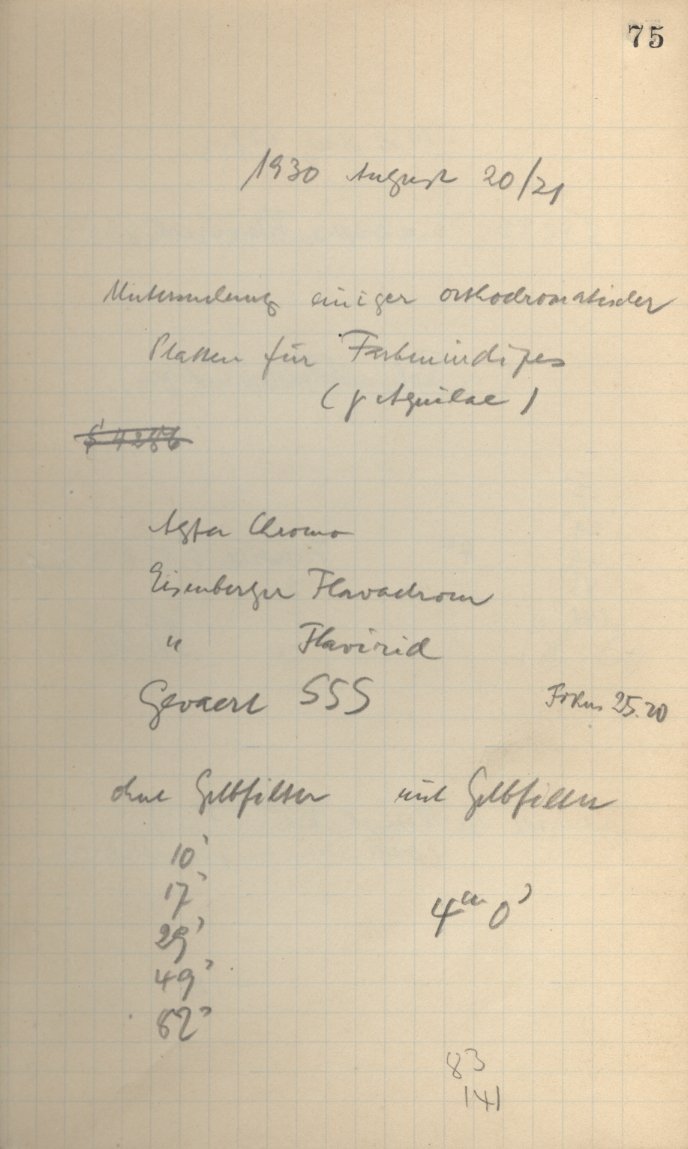 75
1930 August 20/21
Untersuchung einiger orthochromatischer
Platten für Farbenindizes
(γ Aquilae)
Agfa Chromo
Eisenberger Flavachrom
" Flavirid
Gevaert SSS Fokus 25.20
ohne Gelbfilter mit Gelbfilter
10'
17'
29'
49'
82'
4m 0'
83
141